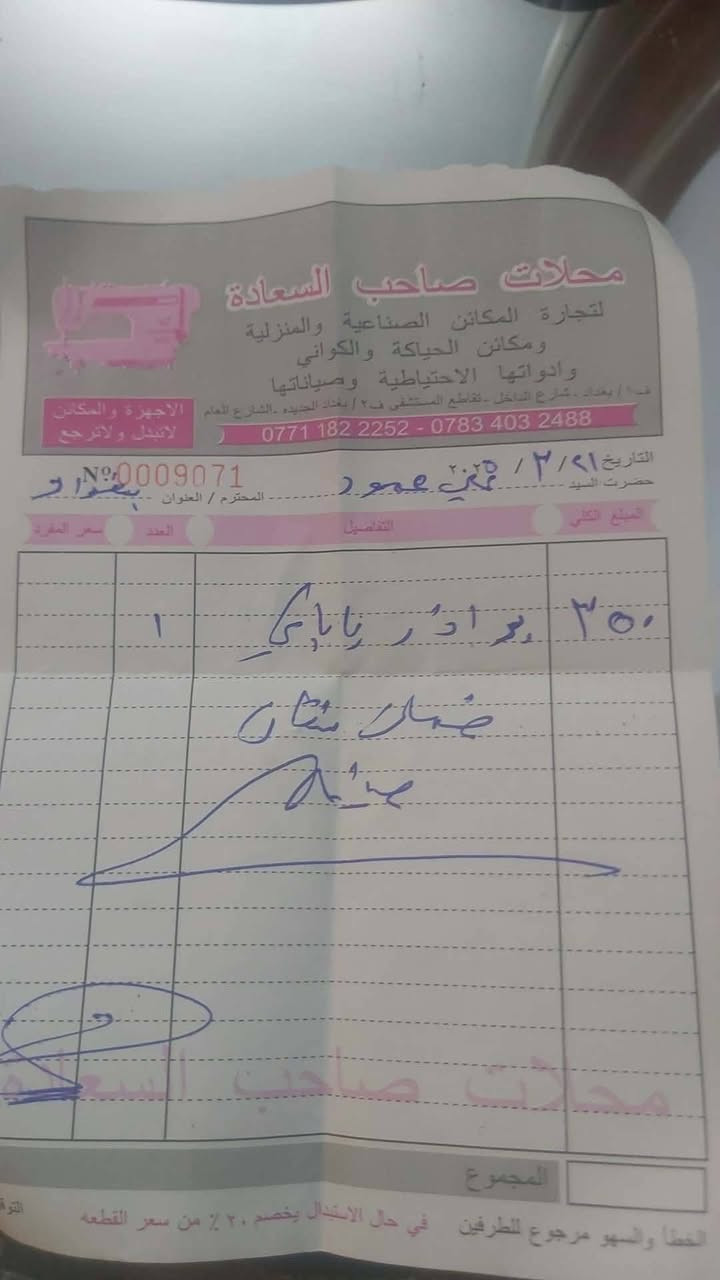 محلات صاحب السعادة
لتجارة المكائن الصناعية والمنزلية
ومكائن الحياكة والكواني
وادواتها الاحتياطية وصياناتها
ف١ / بغداد - شارع الداخل - تقاطع المستشفى ف٢ / بغداد الجديده - الشارع العام
0771 182 2252 - 0783 403 2488
الاجهزة والمكائن
لاتبدل ولاترجع
التاريخ ٢١ / ٣ / ٢٠٢٥
Nº 0009071
حضرت السيد محمود المحترم / العنوان بغداد
المبلغ الكلي التفاصيل العدد سعر المفرد
٣٥٠ ياباني ١
ضمان
محلات صاحب السعادة
المجموع
الخطأ والسهو مرجوع للطرفين في حال الاستبدال يخصم ٢٠٪ من سعر القطعه